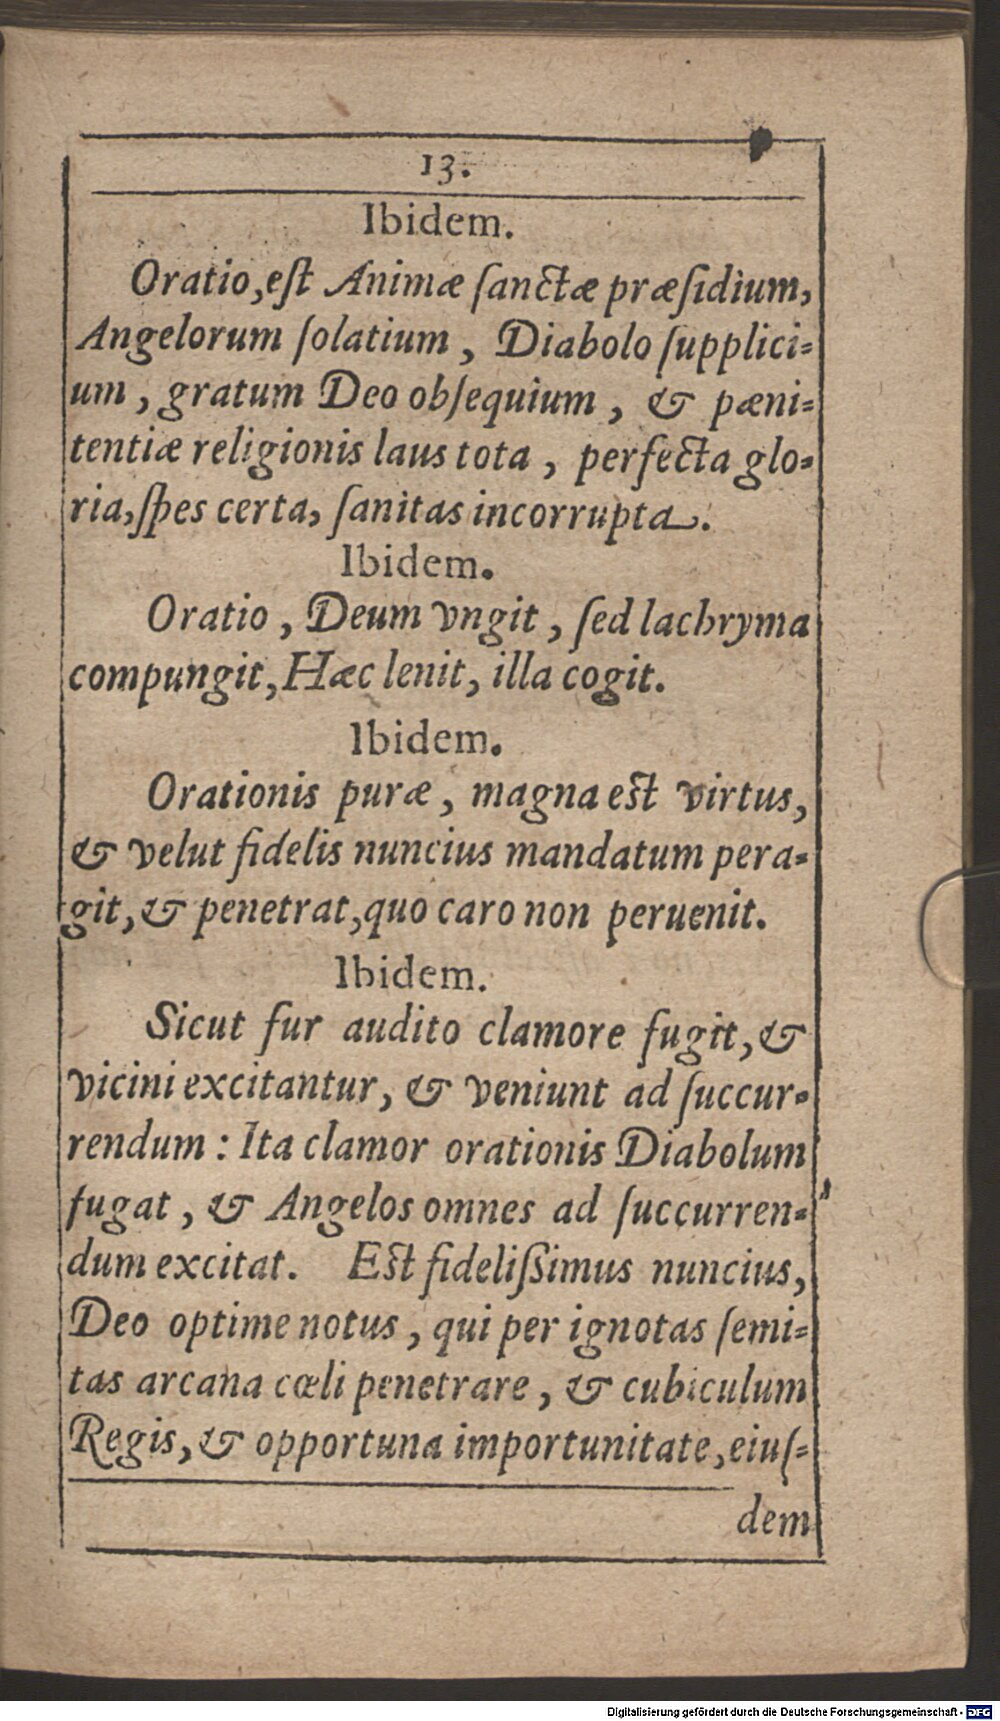 13.
Ibidem.
Oratio, eſt Animæ ſanctæ præſidium,
Angelorum ſolatium, Diabolo ſupplici-
um, gratum Deo obſequium, & pæni-
tentiæ religionis laus tota, perfecta glo-
ria, ſpes certa, ſanitas incorrupta.
Ibidem.
Oratio, Deum vngit, ſed lachryma
compungit, Hæc lenit, illa cogit.
Ibidem.
Orationis puræ, magna est virtus,
& velut fidelis nuncius mandatum pera-
git, & penetrat, quo caro non peruenit.
Ibidem.
Sicut fur audito clamore fugit, &
vicini excitantur, & veniunt ad ſuccur-
rendum: Ita clamor orationis Diabolum
fugat, & Angelos omnes ad ſuccurren-
dum excitat. Est fideliſſimus nuncius,
Deo optime notus, qui per ignotas ſemi-
tas arcana cœli penetrare, & cubiculum
Regis, & opportuna importunitate, eiuſ-
dem
Digitalisierung gefördert durch die Deutsche Forschungsgemeinschaft - DFG